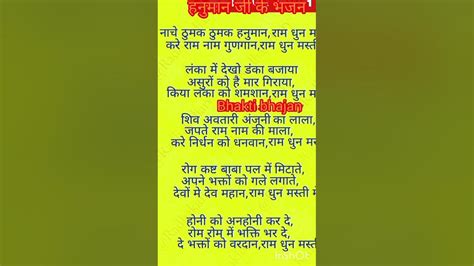 हनुमान जी के भजन
नाचे ठुमक ठुमक हनुमान,राम धुन म
करे राम नाम गुणगान,राम धुन मस्ती
लंका में देखो डंका बजाया
असुरों को है मार गिराया,
किया लंका को शमशान,राम धुन म
Bhakti bhajan
शिव अवतारी अंजनी का लाला,
जपते राम नाम की माला,
करे निर्धन को धनवान,राम धुन मस
रोग कष्ट बाबा पल में मिटाते,
अपने भक्तों को गले लगाते,
देवों मे देव महान,राम धुन मस्ती मे
होनी को अनहोनी कर दे,
रोम रोम में भक्ति भर दे,
दे भक्तों को वरदान,राम धुन मस्ती